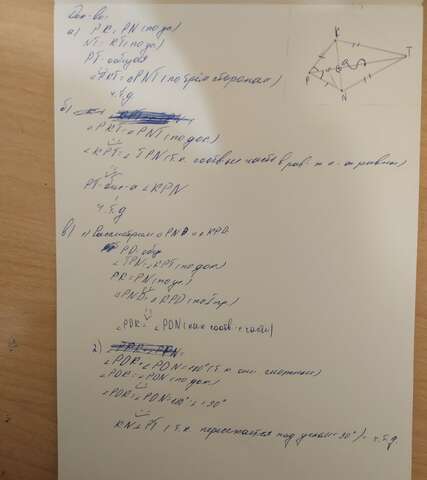 Док-во:
а) PK = PN (по усл)
NT = KT (по усл)
PT - общая
△PKT = △PNT (по трём сторонам)
ч.т.д
б)
△PKT = △PNT (по док)
∠KPT = ∠TPN (т.к. соотв-ые части в рав-х △-х равны)
PT - бис-а ∠KPN
ч.т.д
в) 1) Рассмотрим △PND и △KPD.
PD общ
∠TPN = ∠KPT (по док)
PK = PN (по усл)
△PND = △KPD (по I пр)
∠PDK = ∠PDN (как соотв-е части)
2)
∠PDK + ∠PDN = 180° (т.к. они смежные)
∠PDK = ∠PDN (по док)
∠PDK = ∠PDN = 180° : 2 = 90°
KN ⊥ PT (т.к. пересекаются под углом 90°) ч.т.д.
K
T
P
N